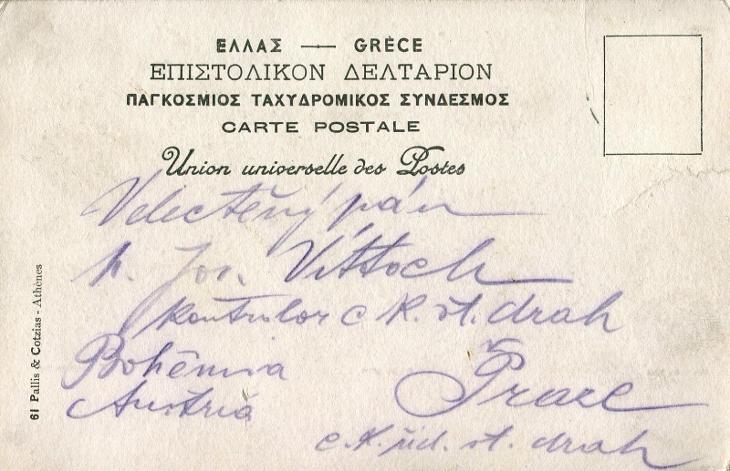 ΕΛΛΑΣ — GRÈCE
ΕΠΙΣΤΟΛΙΚΟΝ ΔΕΛΤΑΡΙΟΝ
ΠΑΓΚΟΣΜΙΟΣ ΤΑΧΥΔΡΟΜΙΚΟΣ ΣΥΝΔΕΣΜΟΣ
CARTE POSTALE
Union universelle des Postes
Velectěný pán
p. Jos. Vittoch
kontrolor c. k. st. drah
Bohêmia
Praze
Austria
c. k. řid. st. drah
61 Pallis & Cotzias - Athènes